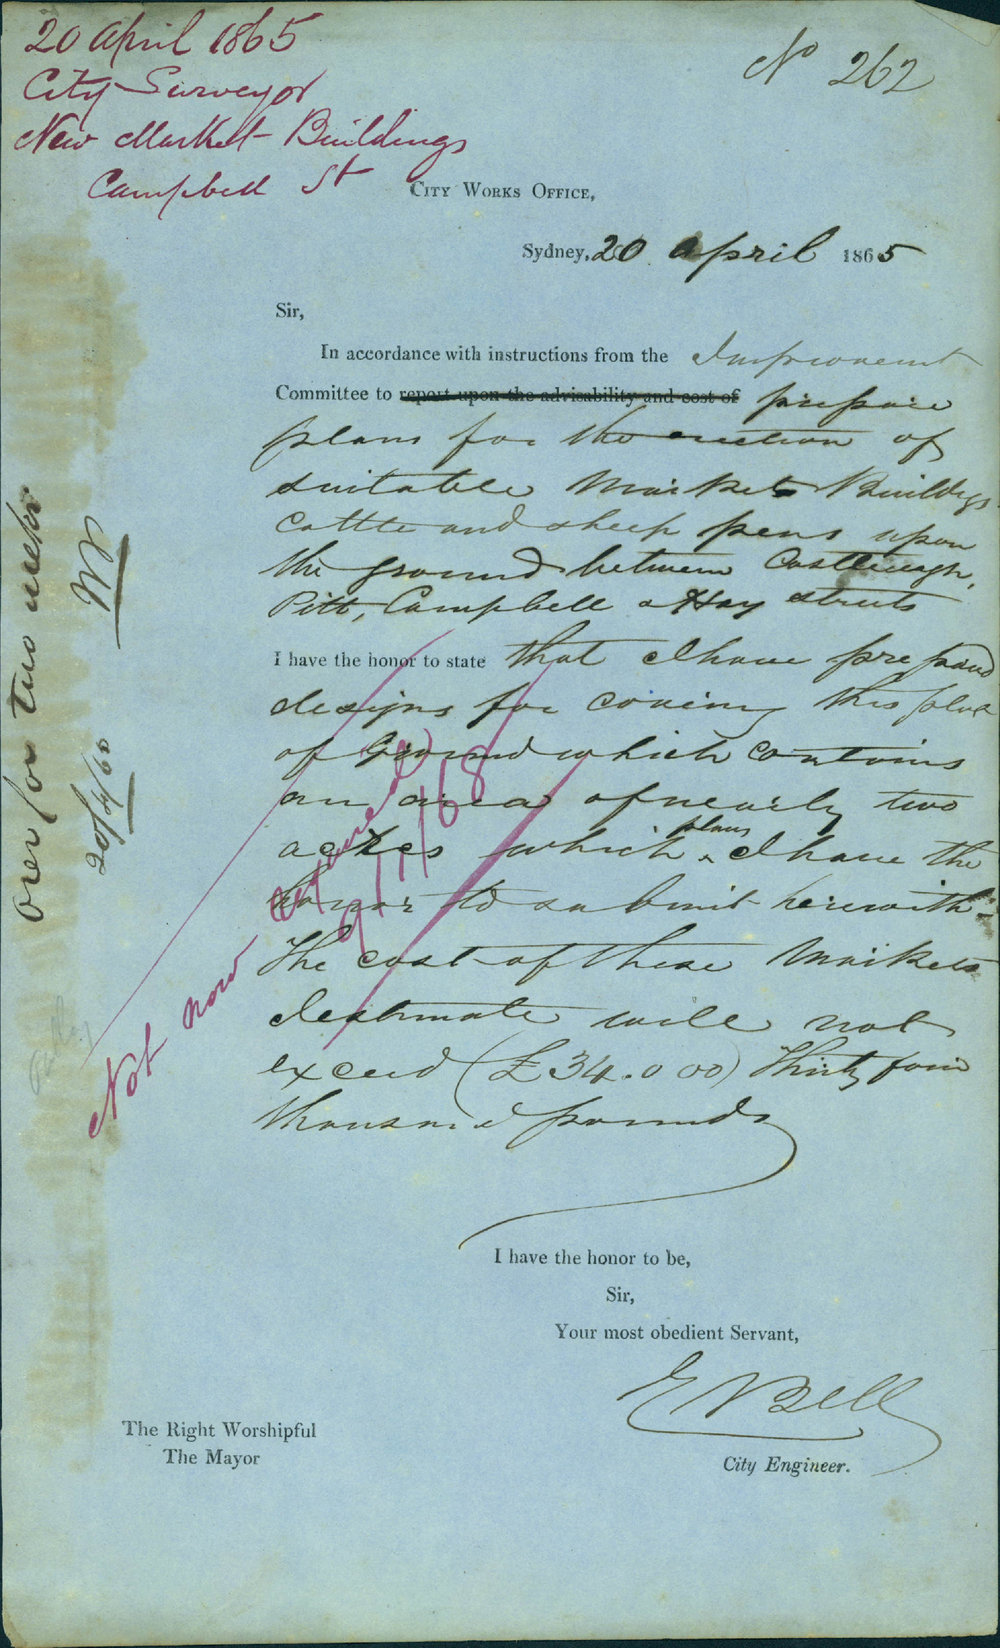 20 April 1865
City Surveyor
New Market Buildings
Campbell St
No 262
City Works Office,
Sydney, 20 April 1865
Sir,
In accordance with instructions from the Improvement
Committee to report upon the advisability and cost of prepare
plans for the erection of
suitable Market Buildings
Cattle and sheep pens upon
the ground between Castlereagh,
Pitt, Campbell & Hay streets
I have the honor to state that I have prepared
designs for covering this place
of Ground which contains
an area of nearly two
acres which plans I have the
honor to submit herewith-
The cost of these Markets
I estimate will not
exceed (£34.000) Thirty four
thousand pounds
I have the honor to be,
Sir,
Your most obedient Servant,
E Bell
City Engineer.
The Right Worshipful
The Mayor
Over for two weeks
20/4/65
Not now
9/11/68